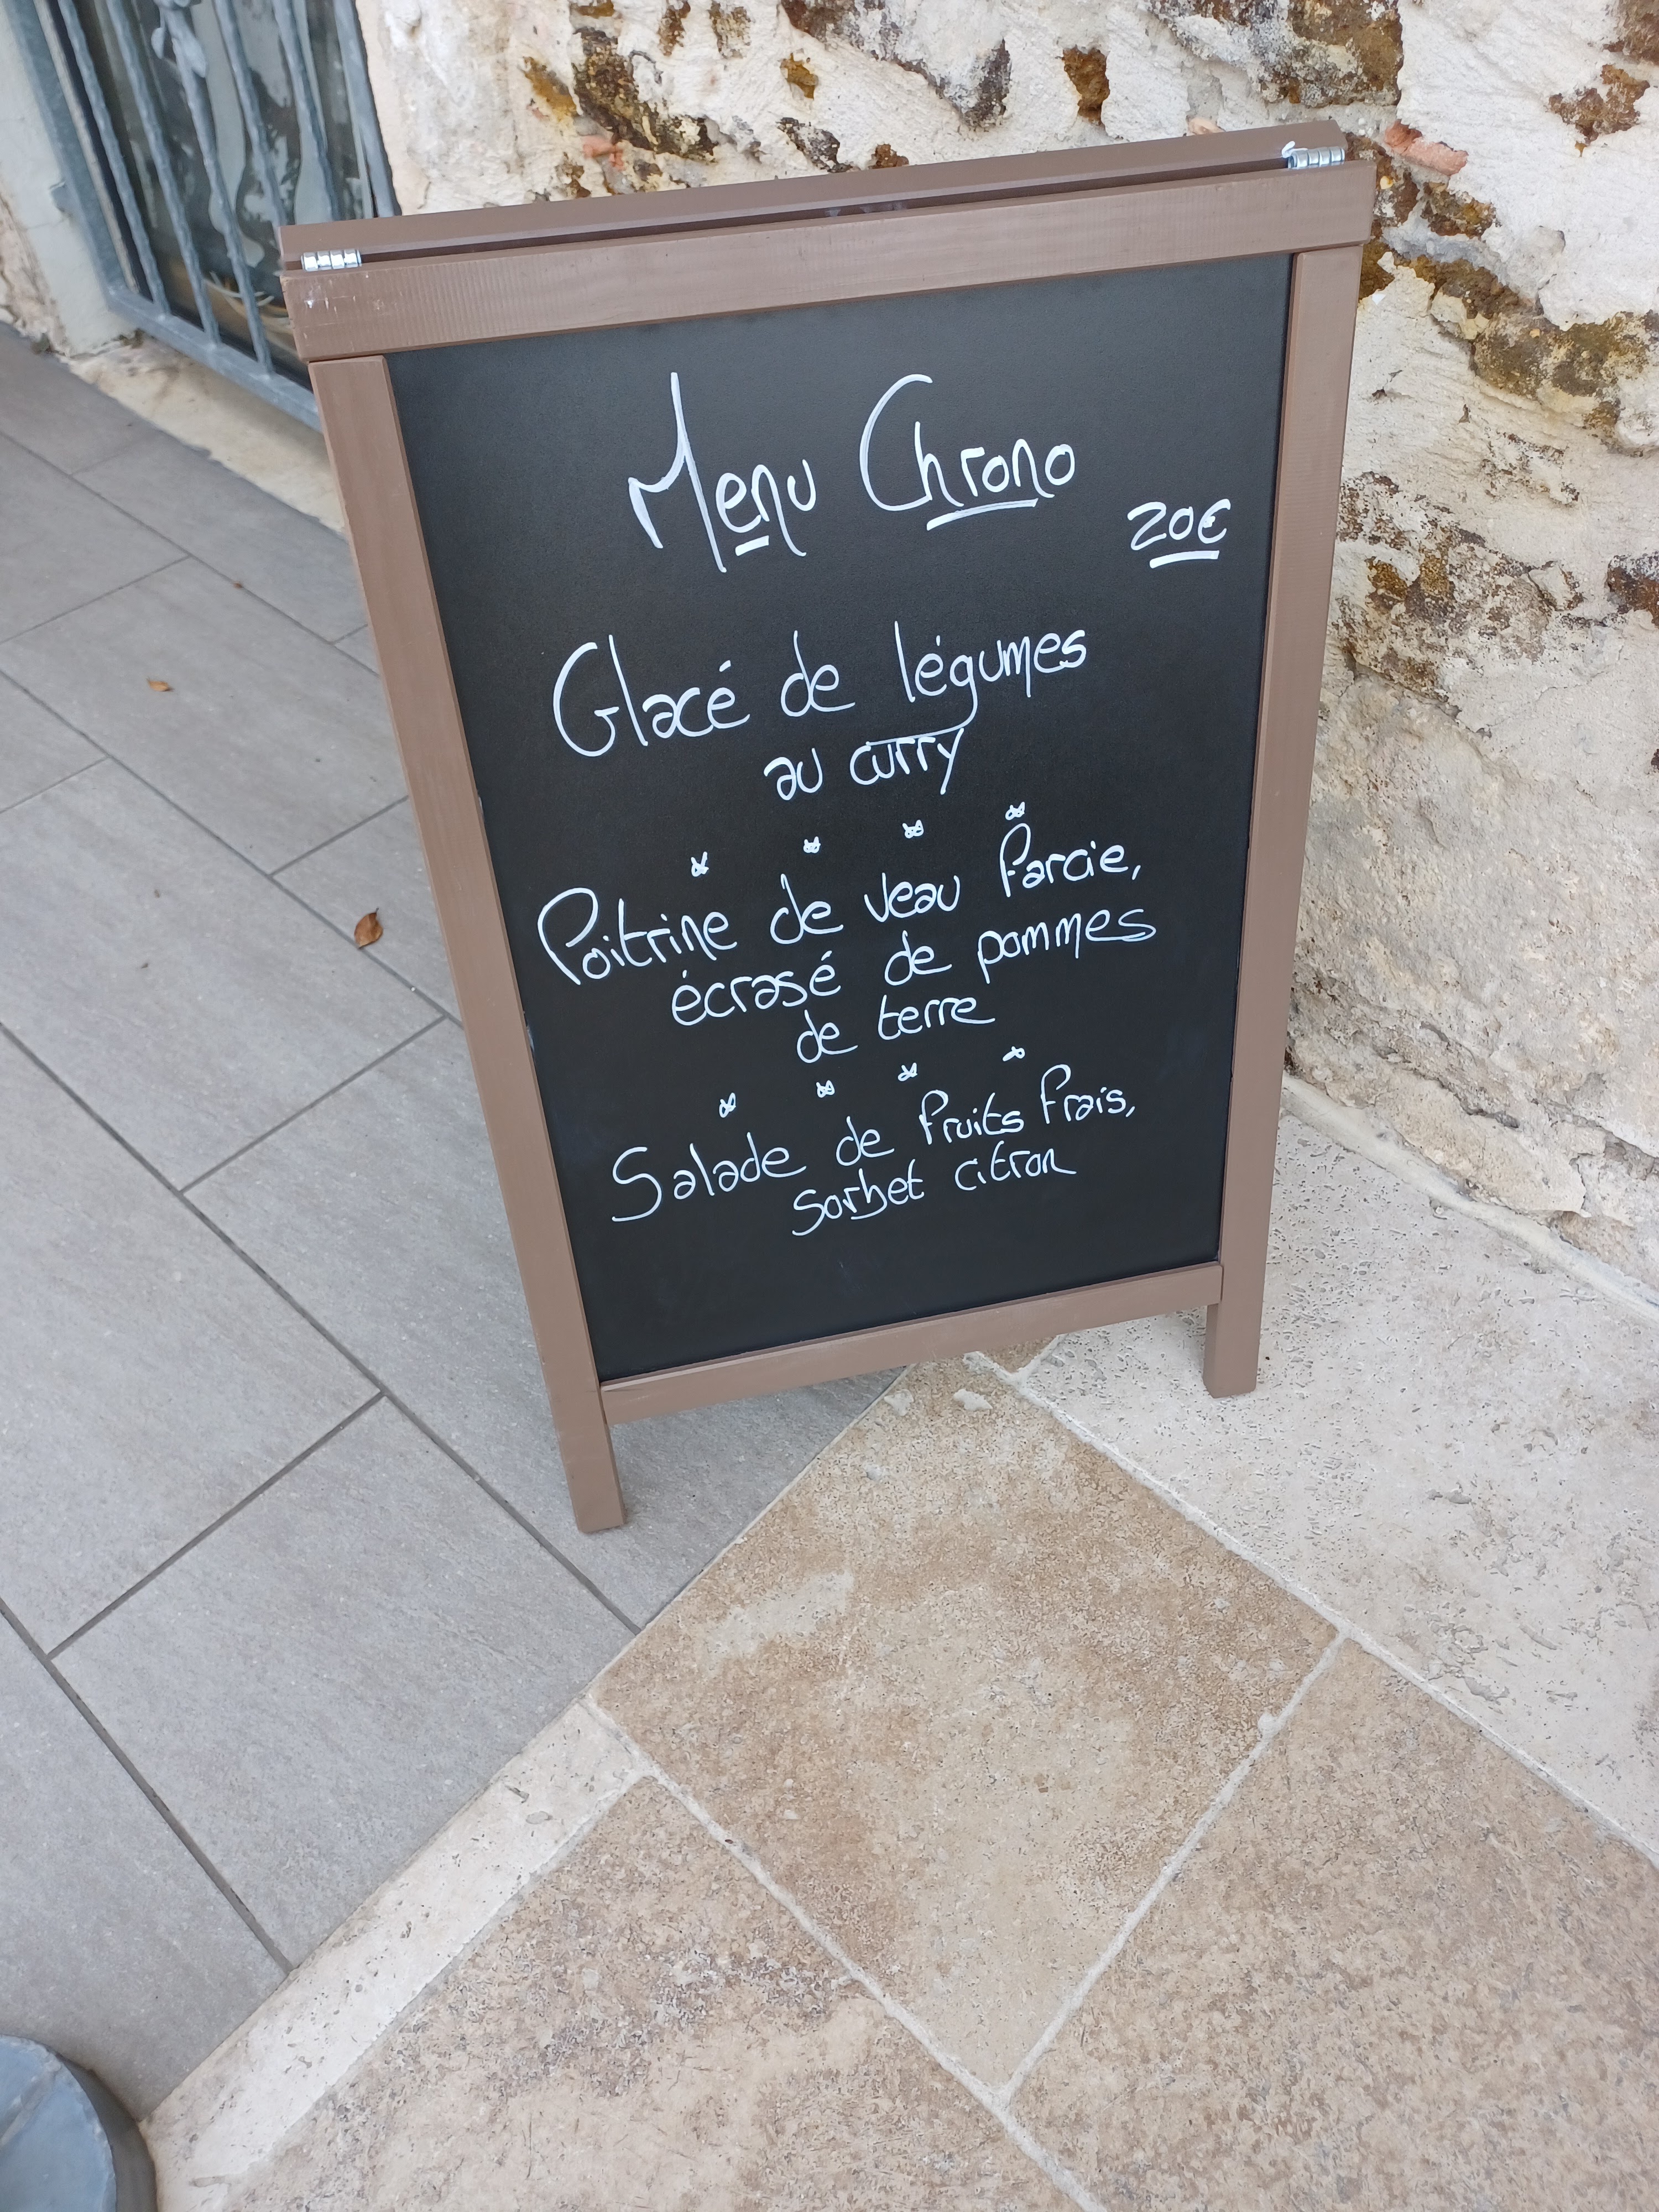 Menu Chrono
20€
Glacé de légumes
au curry
Poitrine de veau farcie,
écrasé de pommes
de terre
Salade de fruits frais,
sorbet citron